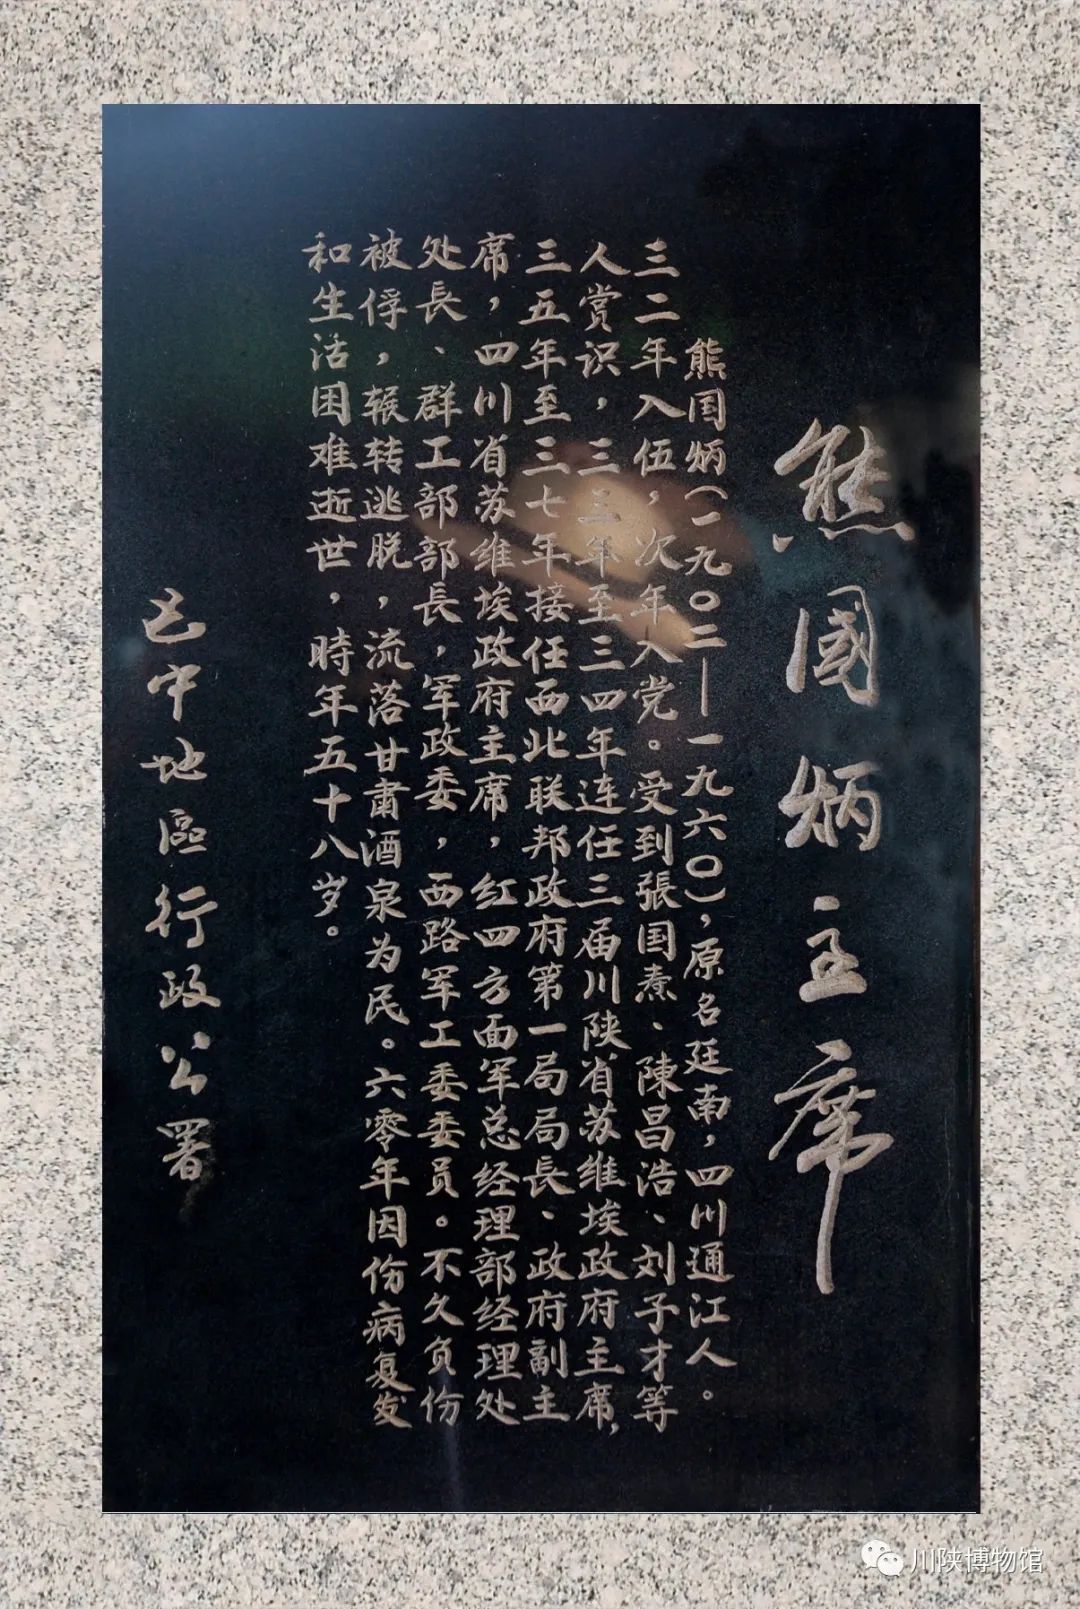 熊國炳主席
熊国炳(一九〇二——一九六〇),原名廷南,四川通江人。
三二年入伍,次年入党。受到張国焘、陳昌浩、刘子才等
人赏识,三三年至三四年连任三届川陕省苏维埃政府主席,
三五年至三七年接任西北联邦政府第一局局長、政府副主
席,四川省苏维埃政府主席,红四方面军总经理部经理处
处長、群工部部長,军政委,西路军工委委员。不久负伤
被俘,辗转逃脱,流落甘肃酒泉为民。六零年因伤病复发
和生活困难逝世,時年五十八岁。
巴中地區行政公署
川陕博物馆